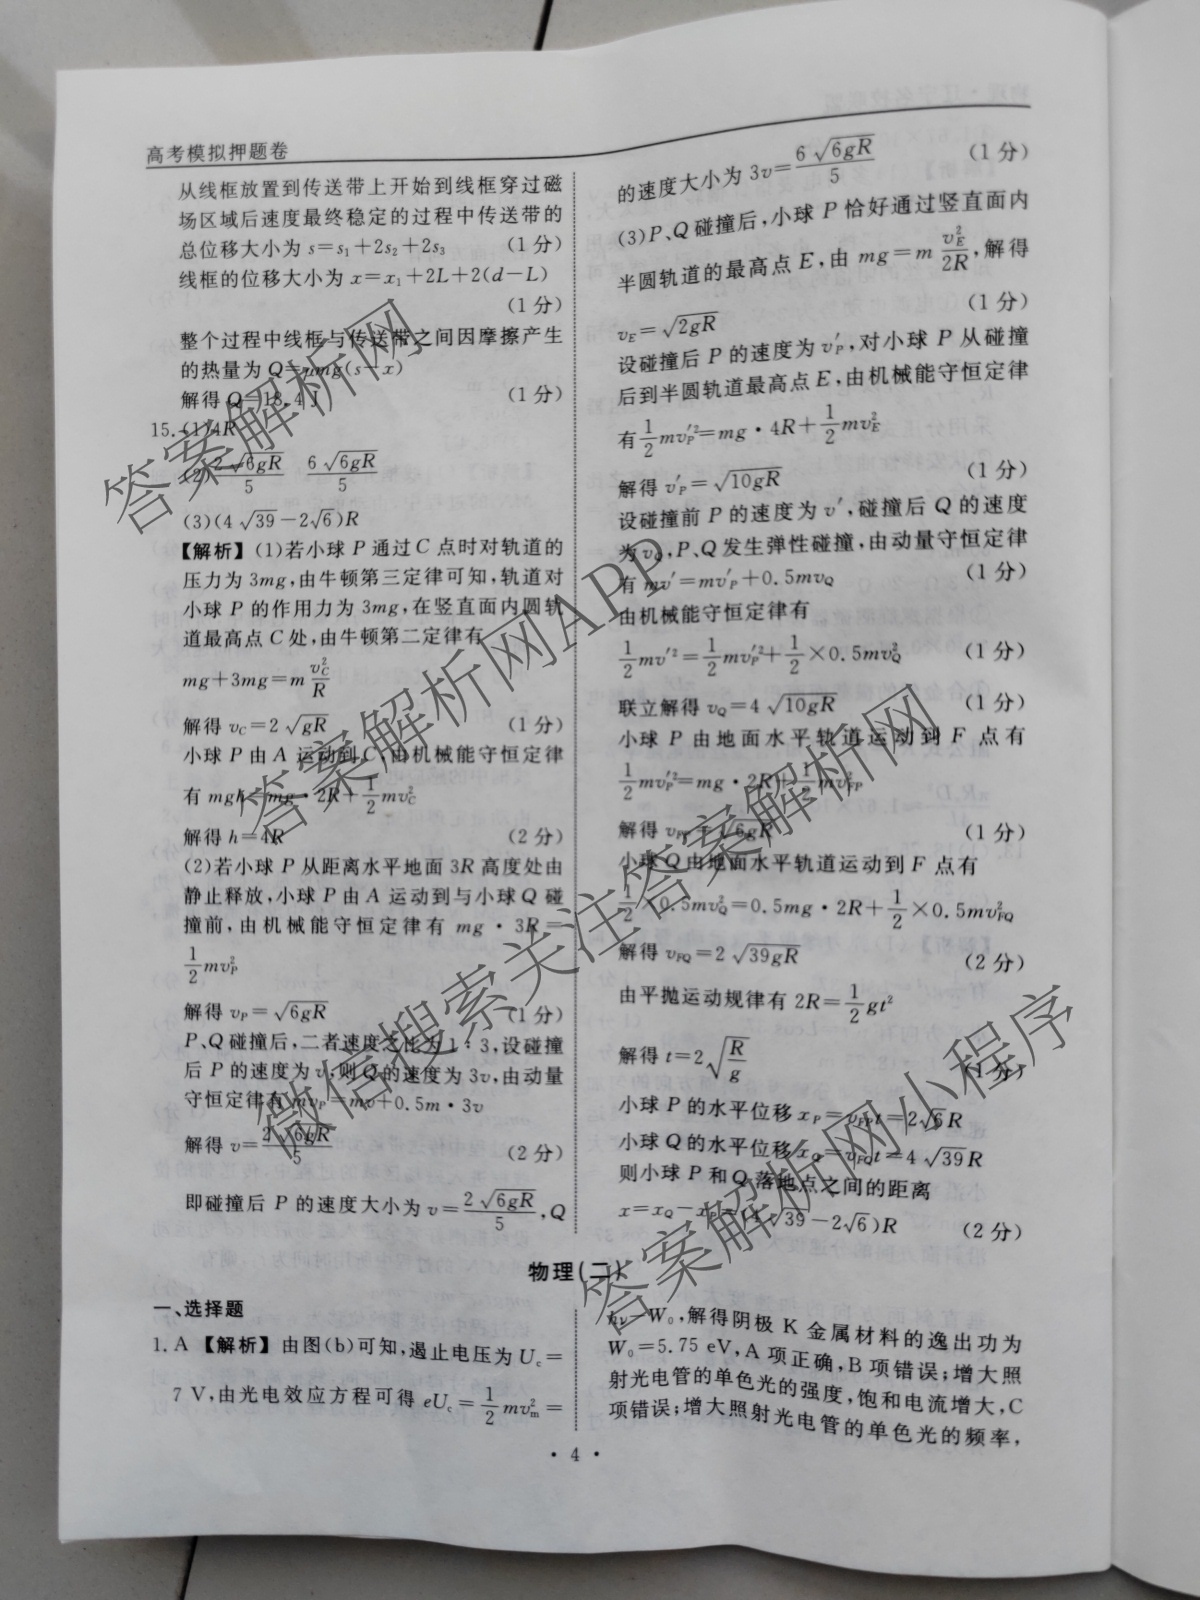 高考模拟押题卷
从线框放置到传送带上开始到线框穿过磁
场区域后速度最终稳定的过程中传送带的
总位移大小为 s=s₁+2s₂+2s₃ (1 分)
线框的位移大小为 x=x₁+2L+2(d-L)
(1 分)
整个过程中线框与传送带之间因摩擦产生
的热量为 Q=μmg(s-x)
解得 Q=18.4 J (1 分)
15. (1)4R
(2) 2√(6gR)/5 6√(6gR)/5
(3)(4√39-2√6)R
【解析】(1)若小球 P 通过 C 点时对轨道的
压力为 3mg,由牛顿第三定律可知,轨道对
小球 P 的作用力为 3mg,在竖直面内圆轨
道最高点 C 处,由牛顿第二定律有
mg+3mg=m v_C²/R
解得 v_C=2√(gR) (1 分)
小球 P 由 A 运动到 C,由机械能守恒定律
有 mgh=mg·2R+1/2 mv_C²
解得 h=4R (2 分)
(2)若小球 P 从距离水平地面 3R 高度处由
静止释放,小球 P 由 A 运动到与小球 Q 碰
撞前,由机械能守恒定律有 mg·3R=
1/2 mv_P²
解得 v_P=√(6gR) (1 分)
P、Q 碰撞后,二者速度之比为 1∶3,设碰撞
后 P 的速度为 v,则 Q 的速度为 3v,由动量
守恒定律有 mv_P=mv+0.5m·3v
解得 v=2√(6gR)/5 (2 分)
即碰撞后 P 的速度大小为 v=2√(6gR)/5,Q
的速度大小为 3v=6√(6gR)/5 (1 分)
(3)P、Q 碰撞后,小球 P 恰好通过竖直面内
半圆轨道的最高点 E,由 mg=m v_E²/2R,解得
v_E=√(2gR) (1 分)
设碰撞后 P 的速度为 v_P′,对小球 P 从碰撞
后到半圆轨道最高点 E,由机械能守恒定律
有 1/2 mv_P′²=mg·4R+1/2 mv_E²
解得 v_P′=√(10gR) (1 分)
设碰撞前 P 的速度为 v′,碰撞后 Q 的速度
为 v_Q,P、Q 发生弹性碰撞,由动量守恒定律
有 mv′=mv_P′+0.5mv_Q (1 分)
由机械能守恒定律有
1/2 mv′²=1/2 mv_P′²+1/2×0.5mv_Q² (1 分)
联立解得 v_Q=4√(10gR) (1 分)
小球 P 由地面水平轨道运动到 F 点有
1/2 mv_P′²=mg·2R+1/2 mv_FP²
解得 v_FP=√(6gR) (1 分)
小球 Q 由地面水平轨道运动到 F 点有
1/2×0.5mv_Q²=0.5mg·2R+1/2×0.5mv_FQ²
解得 v_FQ=2√(39gR) (2 分)
由平抛运动规律有 2R=1/2 gt²
解得 t=2√(R/g) (1 分)
小球 P 的水平位移 x_P=v_FP t=2√6R
小球 Q 的水平位移 x_Q=v_FQ t=4√39R
则小球 P 和 Q 落地点之间的距离
x=x_Q-x_P=(4√39-2√6)R (2 分)
物理(二)
一、选择题
1. A 【解析】 由图(b)可知,遏止电压为 U_c=
7 V,由光电效应方程可得 eU_c=1/2 mv_m²=
hν-W₀,解得阴极 K 金属材料的逸出功为
W₀=5.75 eV,A 项正确,B 项错误;增大照
射光电管的单色光的强度,饱和电流增大,C
项错误;增大照射光电管的单色光的频率,
· 4 ·
答案解析网
答案解析网APP
微信搜索关注答案解析网
答案解析网小程序